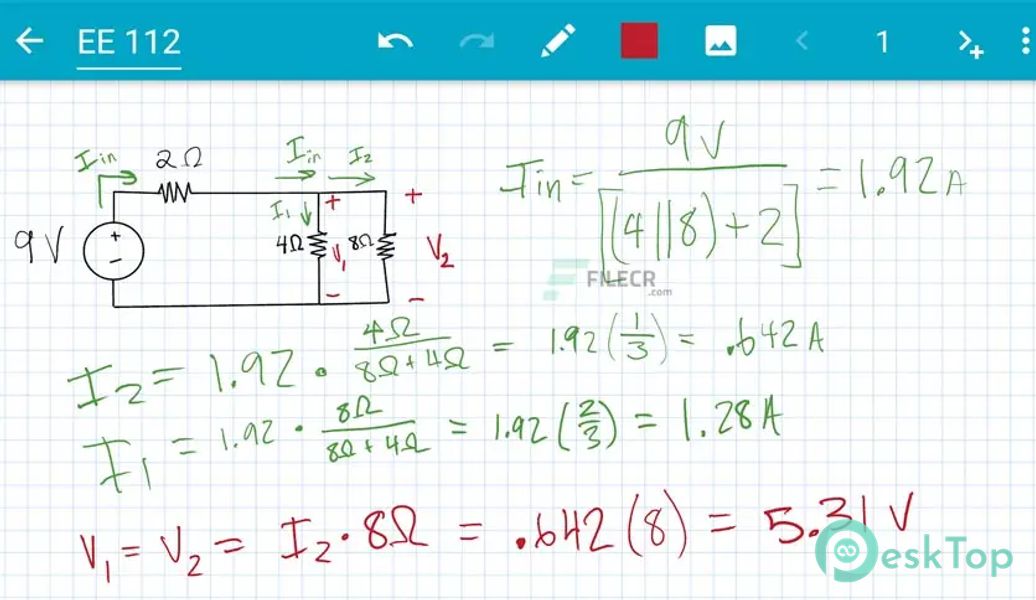 EE 112
1
Iin 2Ω Iin I2
9V + − I1 4Ω + V1 − 8Ω + V2 −
Iin = 9V / [(4||8)+2] = 1.92A
FILECR
.com
I2 = 1.92 • 4Ω / 8Ω+4Ω = 1.92(1/3) = .642A
I1 = 1.92 • 8Ω / 8Ω+4Ω = 1.92(2/3) = 1.28A
V1 = V2 = I2 • 8Ω = .642(8) = 5.31V
DeskTop